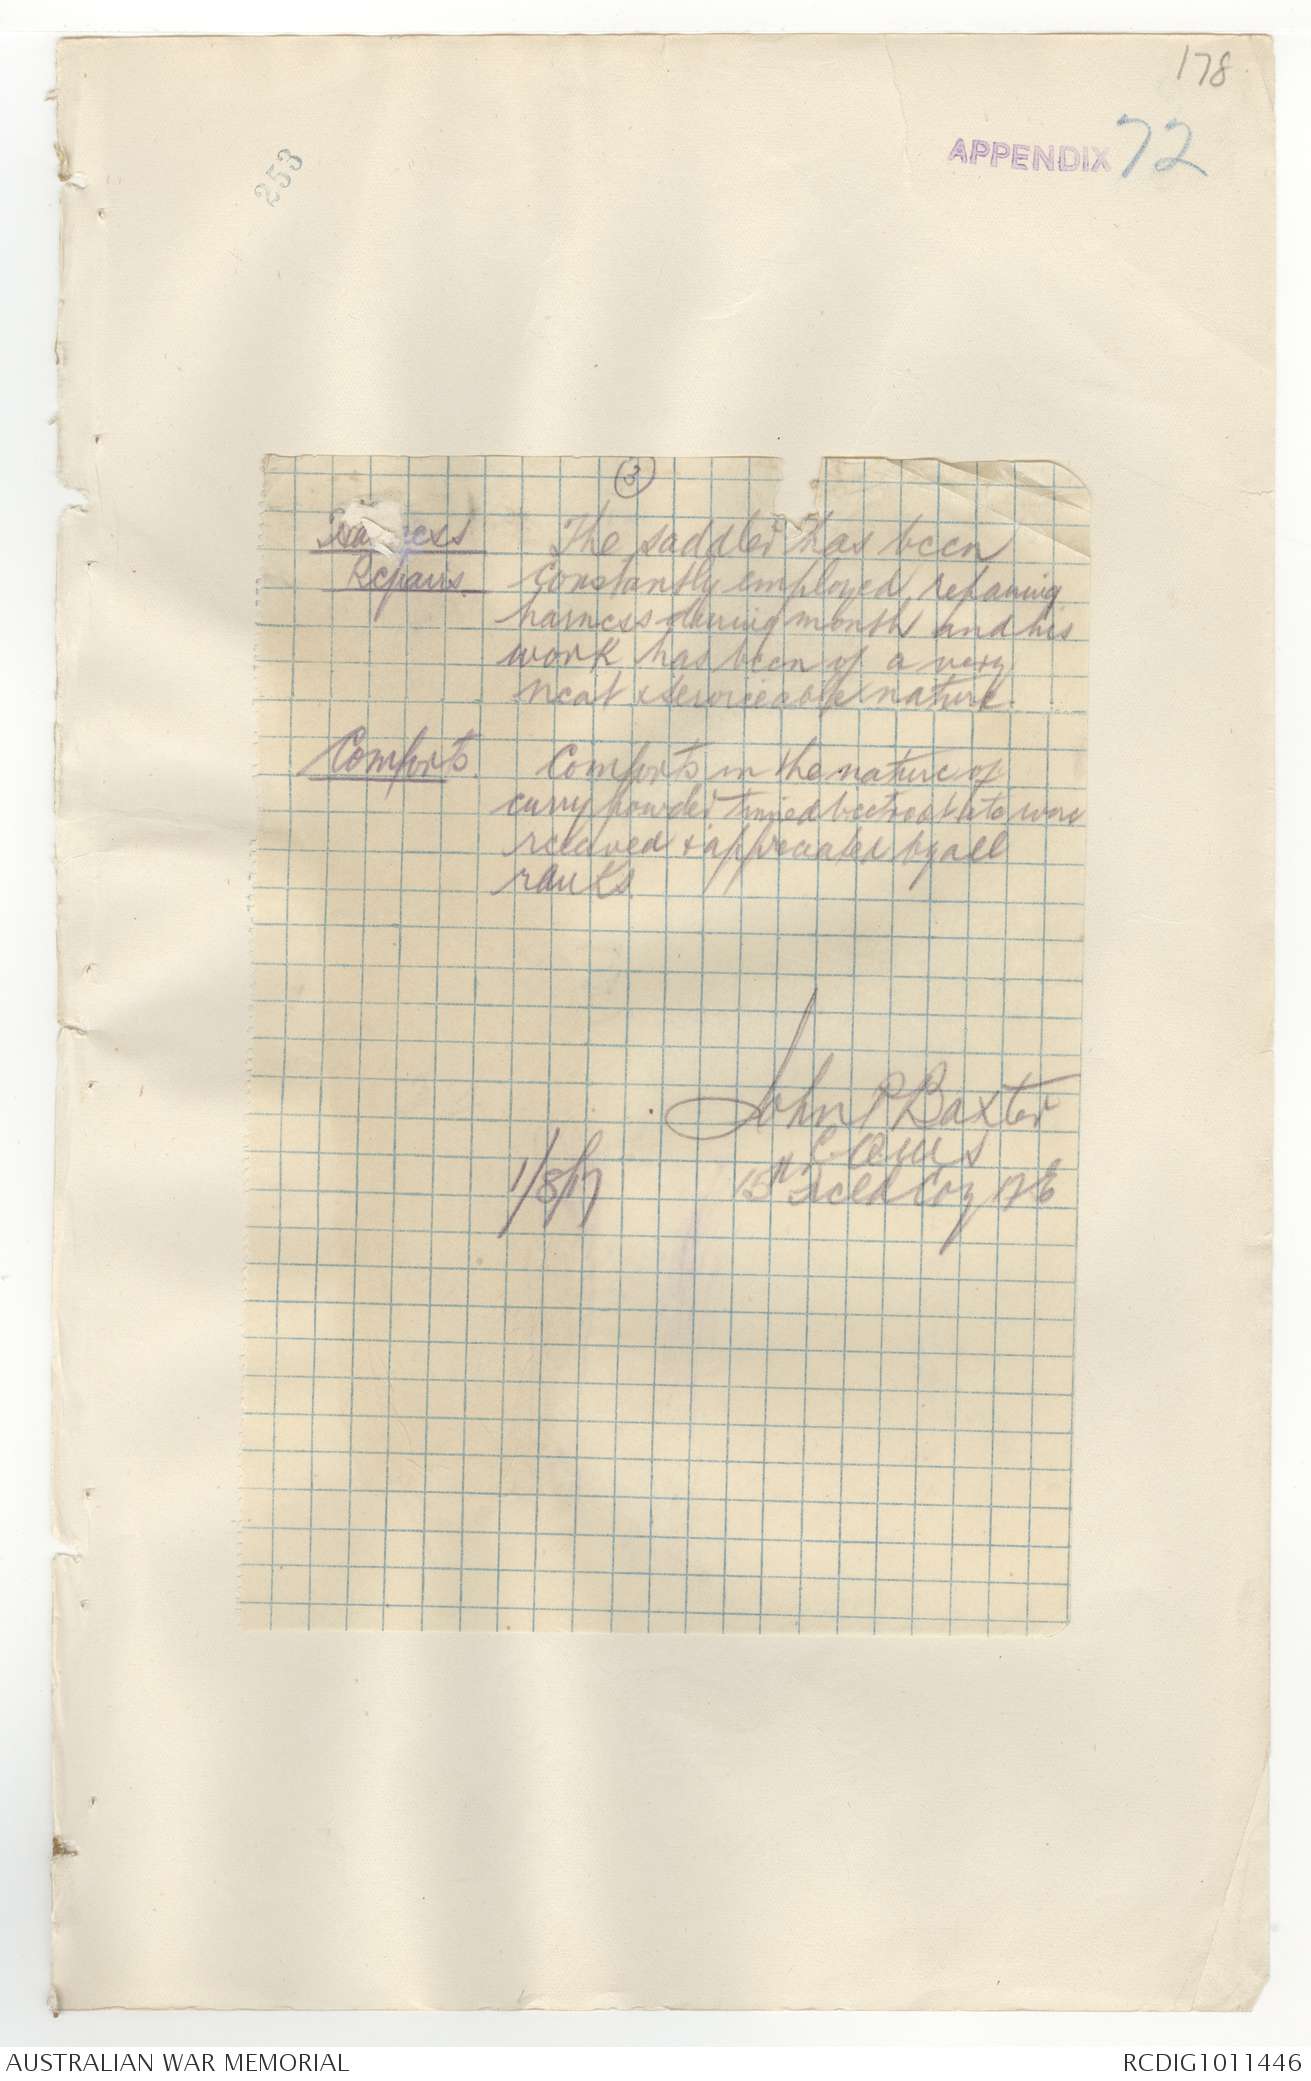 178
APPENDIX 72
253
3
Harness The saddler has been
Repairs. constantly employed repairing
harness during month and his
work has been of a very
neat & serviceable nature.
Comforts. Comforts in the nature of
curry powder tinned beetroot etc were
received & appreciated by all
ranks.
John P Baxter
CQMS
1/8/17 15th Field Coy AE
AUSTRALIAN WAR MEMORIAL RCDIG1011446